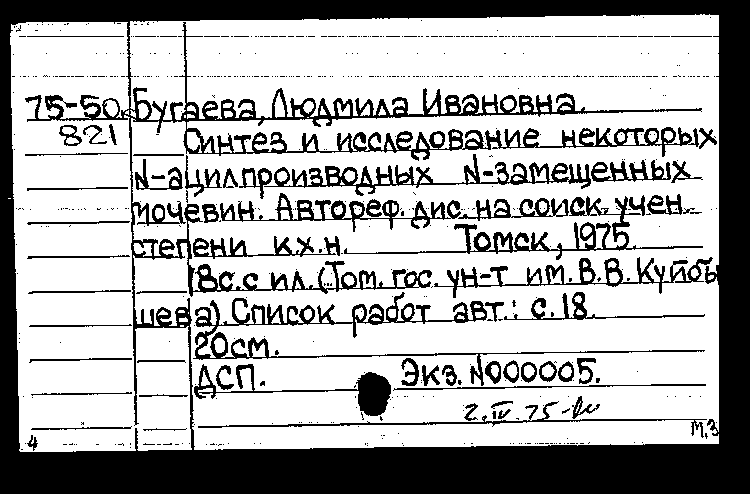 75-50. Бугаева, Людмила Ивановна.
821 Синтез и исследование некоторых
N-ацилпроизводных N-замещенных
мочевин. Автореф. дис. на соиск. учен.
степени к.х.н. Томск, 1975.
18с. с ил. (Том. гос. ун-т им. В.В. Куйбы
шева). Список работ авт.: с. 18.
20см.
ДСП. Экз. N000005.
2.IV.75
4 М,З